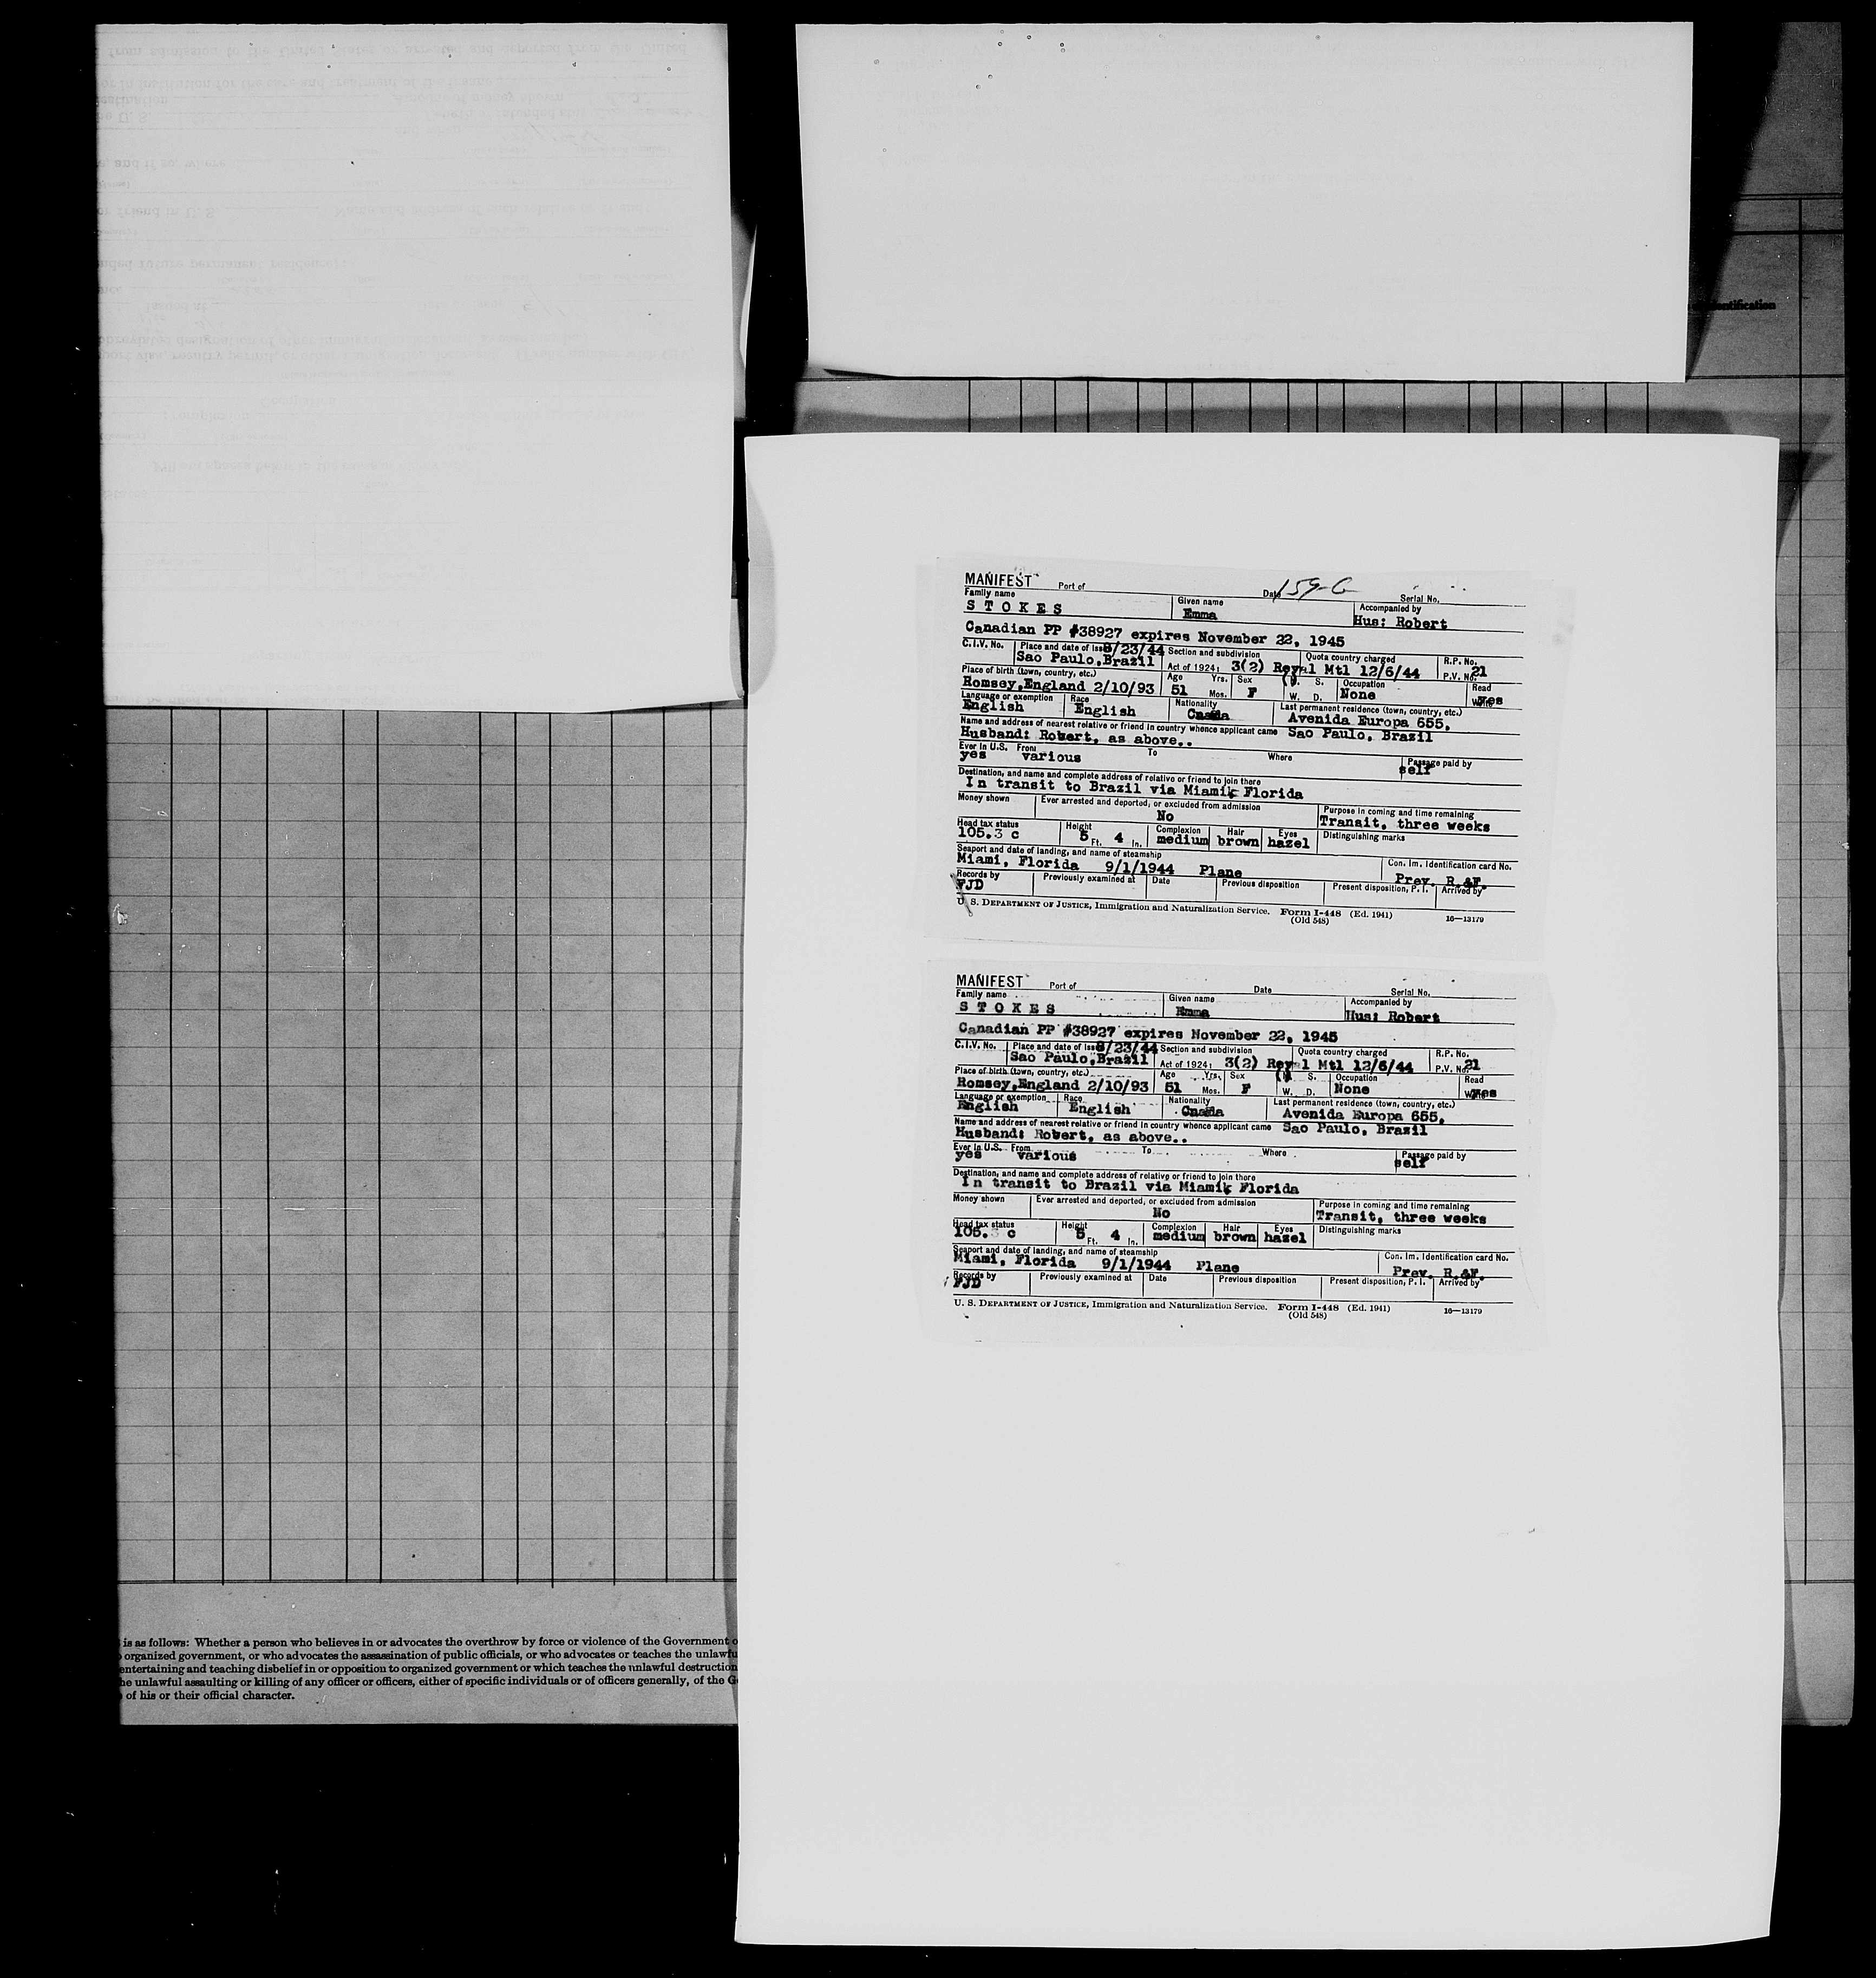 entification
MANIFEST Port of Date 159-G Serial No.
Family name Given name Accompanied by
STOKES Emma Hus: Robert
Canadian PP #38927 expires November 22, 1945
C.I.V. No. Place and date of iss 8/23/44 Section and subdivision Quota country charged R.P. No.
Sao Paulo,Brazil Act of 1924: 3(2) Royal Mtl 12/6/44 P.V. No. 21
Place of birth (town, country, etc.) Age Yrs. Sex S. Occupation Read
Romsey,England 2/10/93 51 Mos. F W. D. None Write yes
Language or exemption Race Nationality Last permanent residence (town, country, etc.)
English English Avenida Europa 655,
Name and address of nearest relative or friend in country whence applicant came Sao Paulo, Brazil
Husband: Robert, as above..
Ever in U.S. From To Where Passage paid by
yes various self
Destination, and name and complete address of relative or friend to join there
In transit to Brazil via Miami Florida
Money shown Ever arrested and deported, or excluded from admission Purpose in coming and time remaining
No Transit, three weeks
Head tax status Height Complexion Hair Eyes Distinguishing marks
105.3 c 5 Ft. 4 In. medium brown hazel
Seaport and date of landing, and name of steamship Con. Im. Identification card No.
Miami, Florida 9/1/1944 Plane Prev. R.&F.
Records by Previously examined at Date Previous disposition Present disposition, P. I. Arrived by
FJD
U. S. DEPARTMENT OF JUSTICE, Immigration and Naturalization Service. Form I-448 (Ed. 1941) 16—13179
(Old 548)
MANIFEST Port of Date Serial No.
Family name Given name Accompanied by
STOKES Emma Hus: Robert
Canadian PP #38927 expires November 22, 1945
C.I.V. No. Place and date of iss 8/23/44 Section and subdivision Quota country charged R.P. No.
Sao Paulo,Brazil Act of 1924: 3(2) Royal Mtl 12/6/44 P.V. No. 21
Place of birth (town, country, etc.) Age Yrs. Sex S. Occupation Read
Romsey,England 2/10/93 51 Mos. F W. D. None Write yes
Language or exemption Race Nationality Last permanent residence (town, country, etc.)
English English Avenida Europa 655,
Name and address of nearest relative or friend in country whence applicant came Sao Paulo, Brazil
Husband: Robert, as above..
Ever in U.S. From To Where Passage paid by
yes various self
Destination, and name and complete address of relative or friend to join there
In transit to Brazil via Miami Florida
Money shown Ever arrested and deported, or excluded from admission Purpose in coming and time remaining
No Transit, three weeks
Head tax status Height Complexion Hair Eyes Distinguishing marks
105.3 c 5 Ft. 4 In. medium brown hazel
Seaport and date of landing, and name of steamship Con. Im. Identification card No.
Miami, Florida 9/1/1944 Plane Prev. R.&F.
Records by Previously examined at Date Previous disposition Present disposition, P. I. Arrived by
FJD
U. S. DEPARTMENT OF JUSTICE, Immigration and Naturalization Service. Form I-448 (Ed. 1941) 16—13179
(Old 548)
is as follows: Whether a person who believes in or advocates the overthrow by force or violence of the Government o
organized government, or who advocates the assassination of public officials, or who advocates or teaches the unlawfu
entertaining and teaching disbelief in or opposition to organized government or which teaches the unlawful destruction
he unlawful assaulting or killing of any officer or officers, either of specific individuals or of officers generally, of the G
of his or their official character.